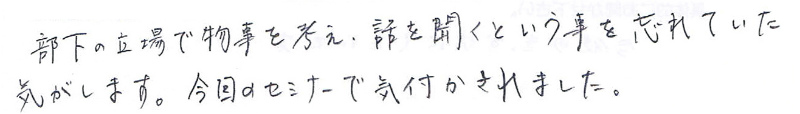 部下の立場で物事を考え、話を聞くという事を忘れていた
気がします。今回のセミナーで気付かされました。